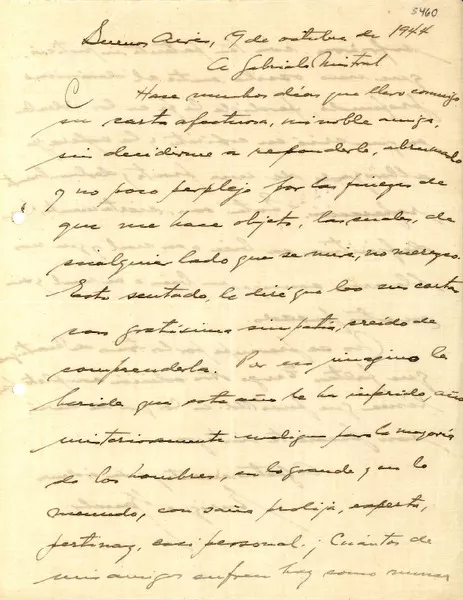 5460
Buenos Aires, 9 de octubre de 1944
A Gabriela Mistral
Hace muchos días que llevo conmigo
su carta afectuosa, mi noble amiga,
sin decidirme a responderla, abrumado
y no poco perplejo por los juegos de
que me hace objeto, los cuales, de
cualquier lado que se mire, no merezco.
Esto sentado, le diré que leo su carta
con gratísima simpatía, creído de
comprenderla. Por su imagino la
herida que este año le ha inferido, año
misteriosamente maligno para la mayoría
de los hombres, en lo grande y en lo
menudo, con saña prolija, experta,
pertinaz, casi personal. ¡Cuántos de
mis amigos sufren hoy como nunca